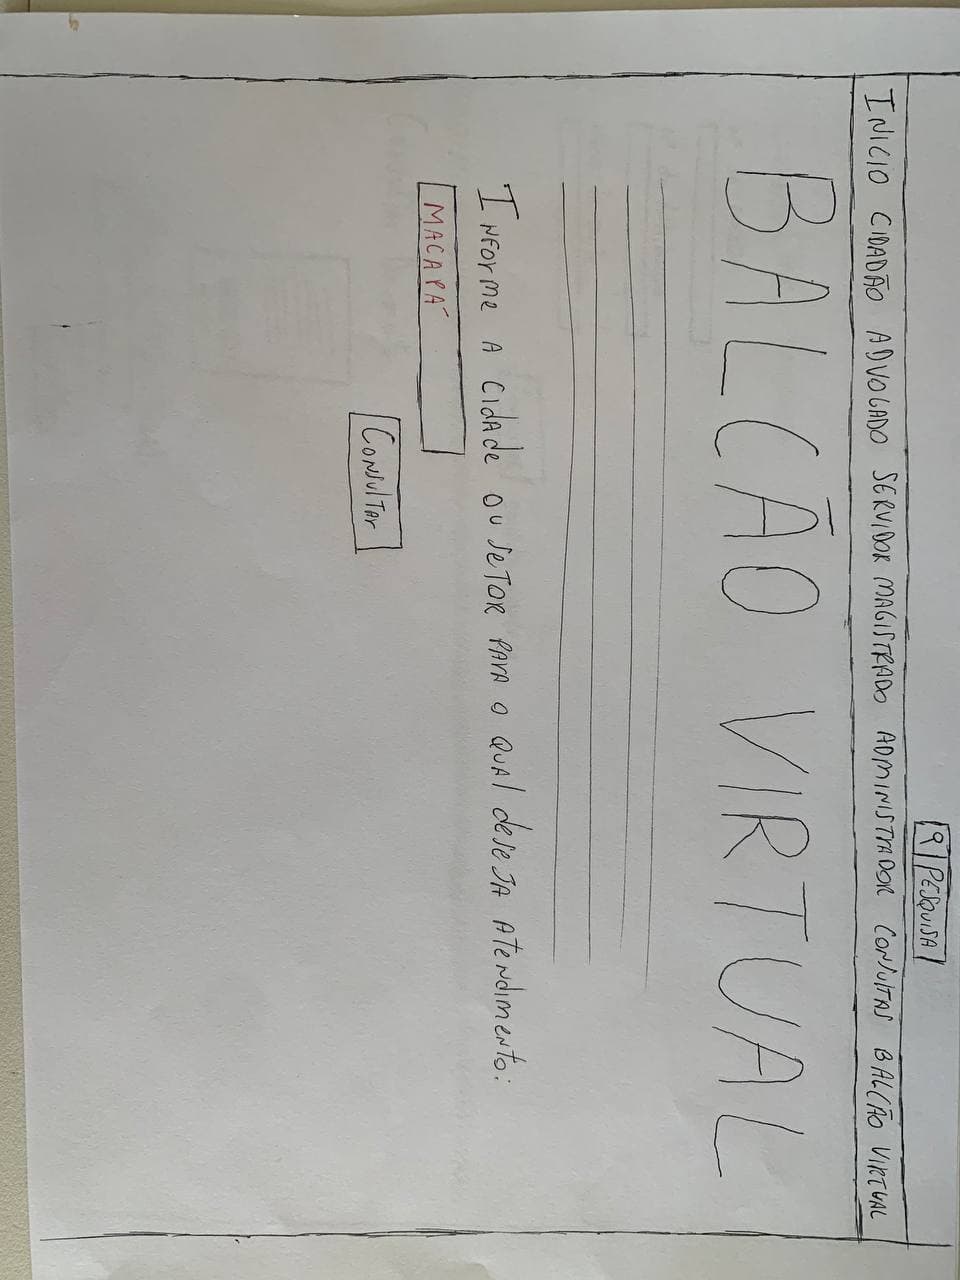 PESQUISA
INICIO CIDADÃO ADVOGADO SERVIDOR MAGISTRADO ADMINISTRADOR CONSULTAS BALCÃO VIRTUAL
BALCÃO VIRTUAL
INFORME A CIDADE OU SETOR PARA O QUAL DESEJA ATENDIMENTO:
MACAPÁ
CONSULTAR